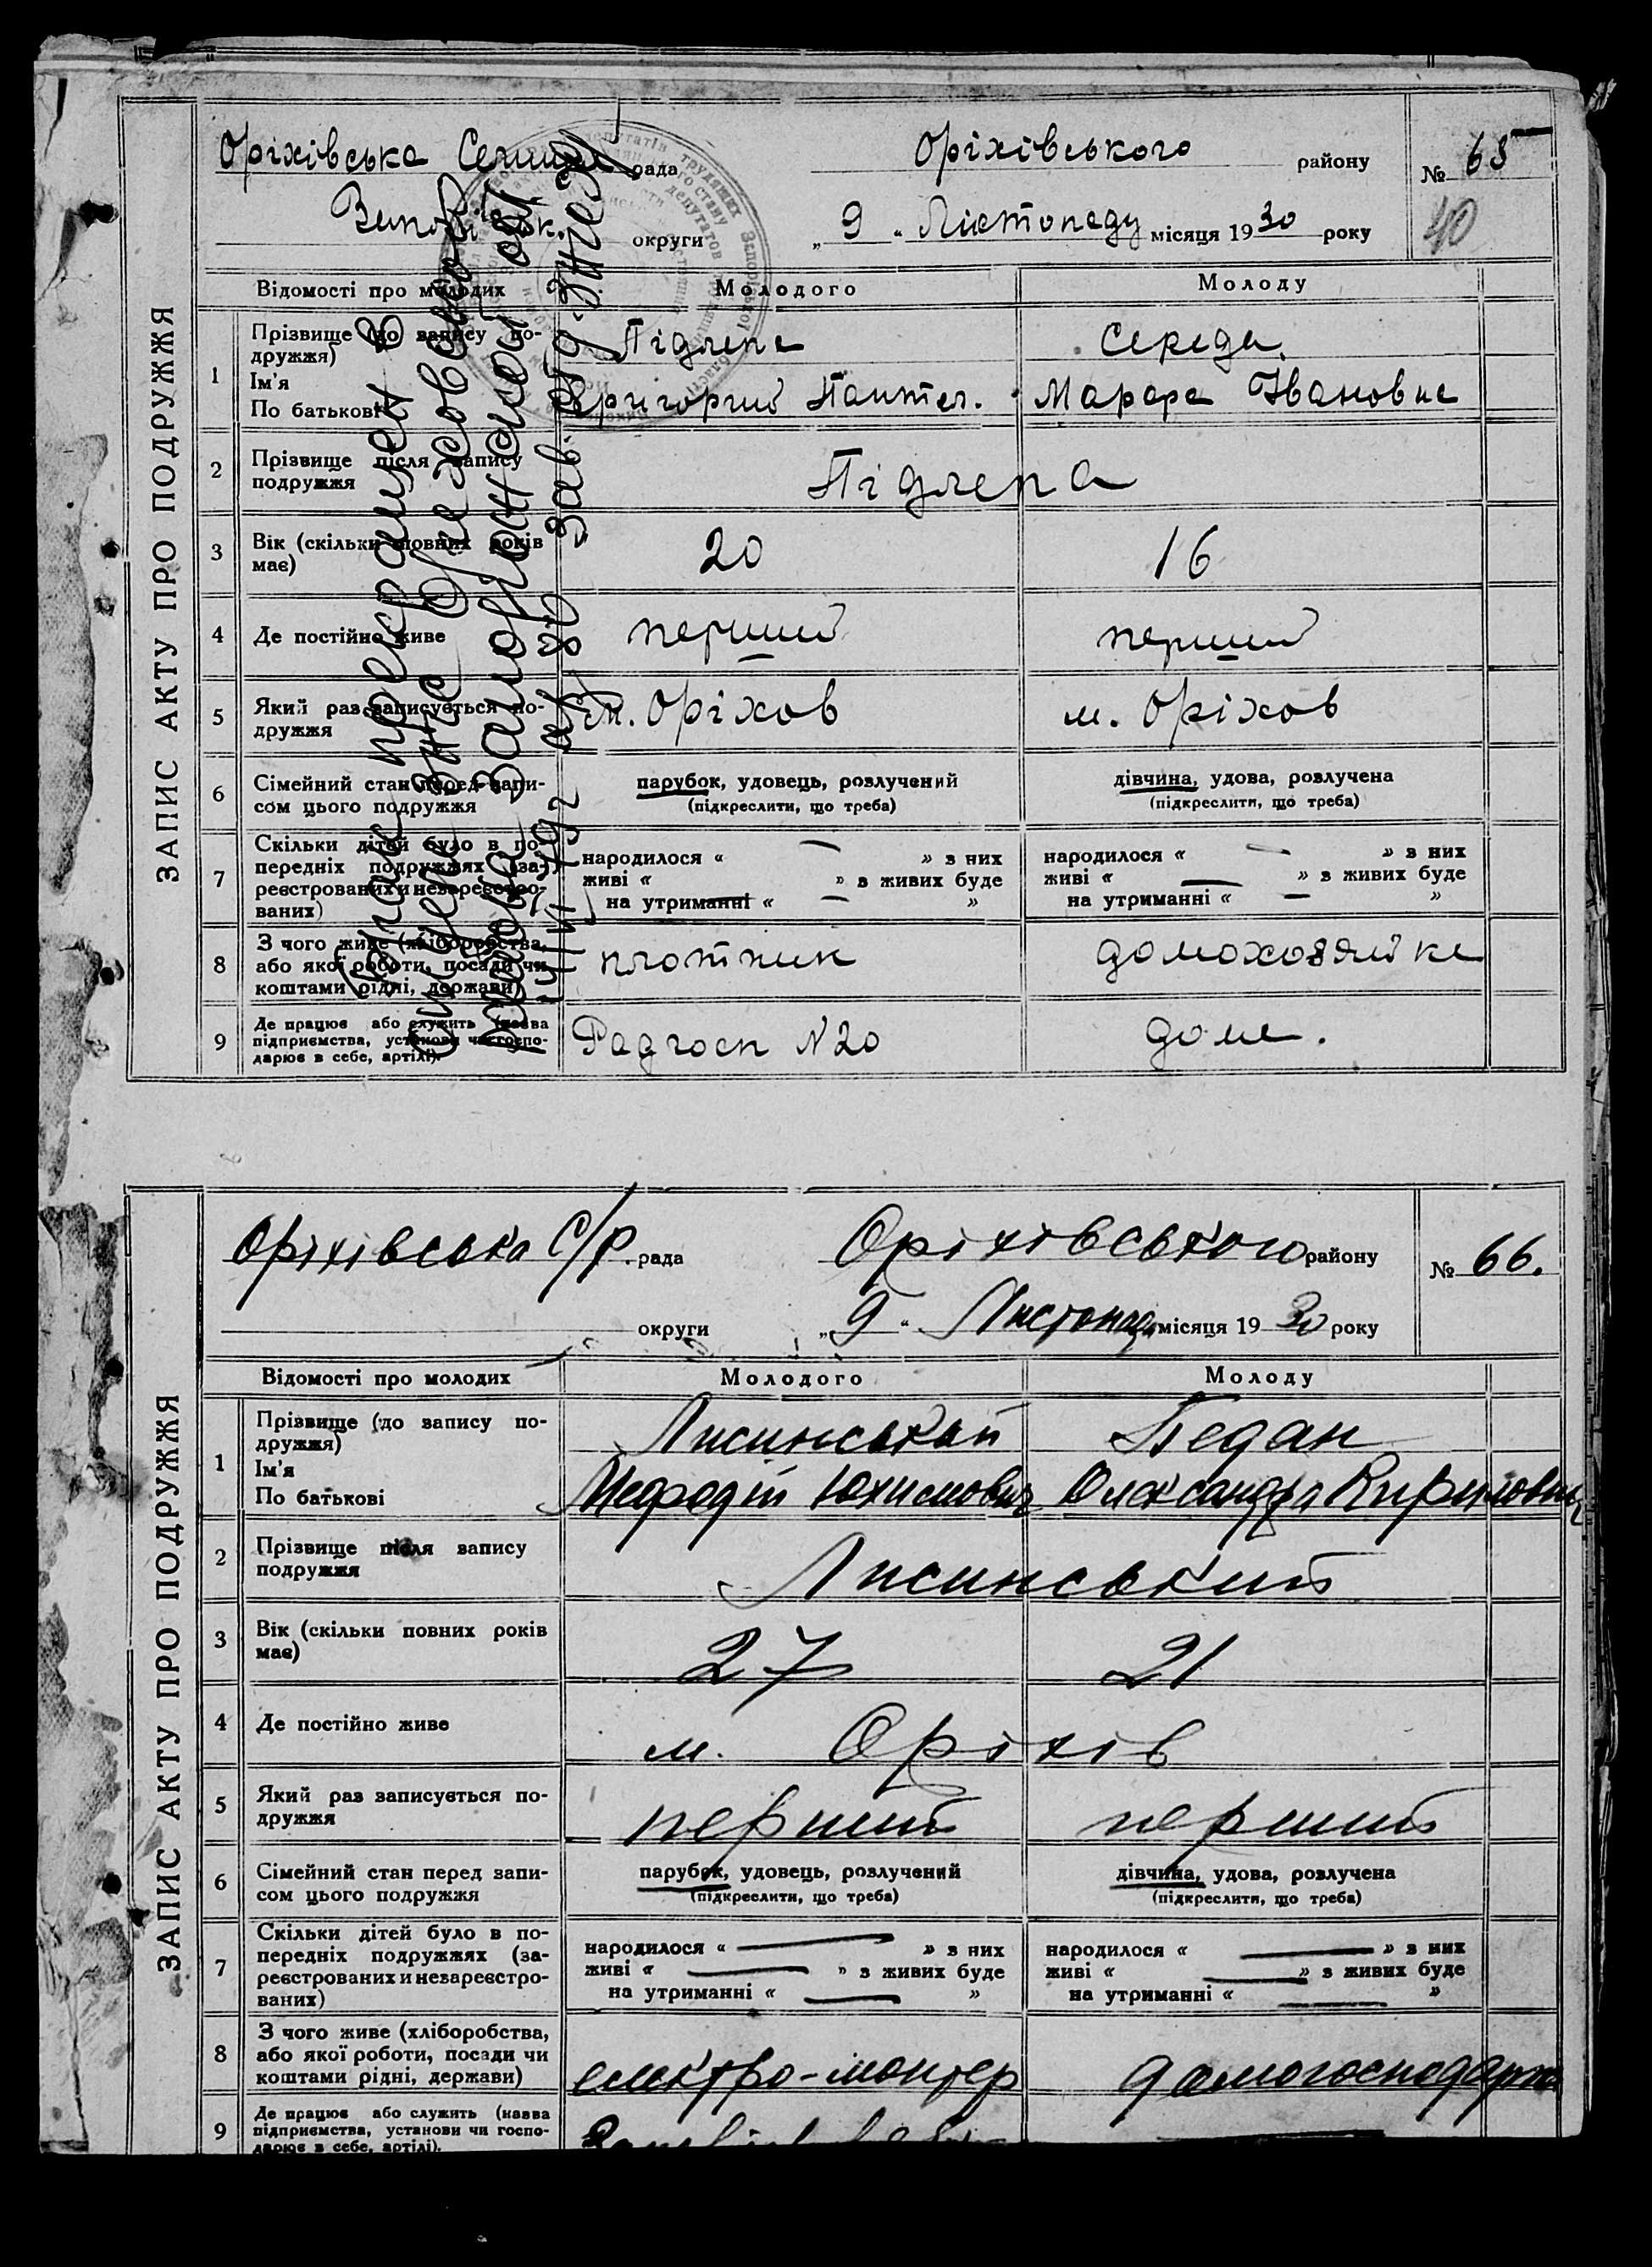 ЗАПИС АКТУ ПРО ПОДРУЖЖЯ
Оріхівська рада Оріхівського району № 65
40
округи „ 9 “ Листопаду місяця 1930 року
Відомості про молодих Молодого Молоду
1 Прізвище (до запису подружжя) Підлепа Середа
Ім'я По батькові Григорий Пантел. Иванов
2 Прізвище після запису подружжя Підлепа
3 Вік (скільки повних років має) 20 16
4 Де постійно живе перший перший
5 Який раз записується подружжя м. Оріхов м. Оріхов
6 Сімейний стан перед записом цього подружжя парубок, удовець, розлучений дівчина, удова, розлучена
(підкреслити, що треба) (підкреслити, що треба)
7 Скільки дітей було в попередніх подружжях (зареєстрованих и незареєстрованих)
народилося « — » з них народилося « — » з них
живі « » з живих буде живі « — » з живих буде
на утриманні « — » на утриманні « — »
8 З чого живе (хліборобства, або якої роботи, посади чи коштами рідні, держави) плотник домохозяйка
9 Де працює або служить (назва підприємства, установи чи господарює в себе, артілі). Радгосп N20 дома.
Брак прекращен в
ЗАПИС АКТУ ПРО ПОДРУЖЖЯ
Оріхівська С/Р. рада Оріхівського району № 66.
округи „ 9 “ Листопада місяця 1930 року
Відомості про молодих Молодого Молоду
1 Прізвище (до запису по-
дружжя) Лисинський Педан
Ім'я
По батькові Мефодій Юхимович Олександра Кирилов
2 Прізвище після запису
подружжя Лисинський
3 Вік (скільки повних років
має) 27 21
4 Де постійно живе м. Оріхів
5 Який раз записується по-
дружжя перший перший
6 Сімейний стан перед запи- парубок, удовець, розлучений дівчина, удова, розлучена
сом цього подружжя (підкреслити, що треба) (підкреслити, що треба)
7 Скільки дітей було в по-
передніх подружжях (за-
реєстрованих и незареєстро-
ваних)
народилося « — » з них народилося « — » з них
живі « — » з живих буде живі « — » з живих буде
на утриманні « — » на утриманні « — »
8 З чого живе (хліборобства,
або якої роботи, посади чи
коштами рідні, держави) електро-монтер
9 Де працює або служить (назва
підприємства, установи чи госпо-
дарює в себе, артілі).